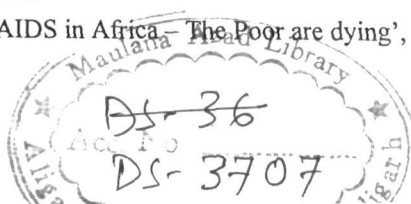 AIDS in Africa – The Poor are dying',
Maulana Azad Library
DS-36
Acc. No
DS-3707
Aligarh